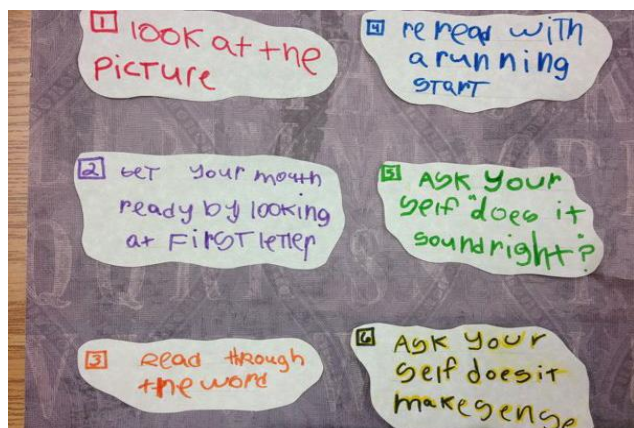 1 look at the
picture
2 get your mouth
ready by looking
at First letter
3 Read through
the word
4 re read with
a running
start
5 Ask your
self "does it
sound right"?
6 Ask your
self does it
make sense